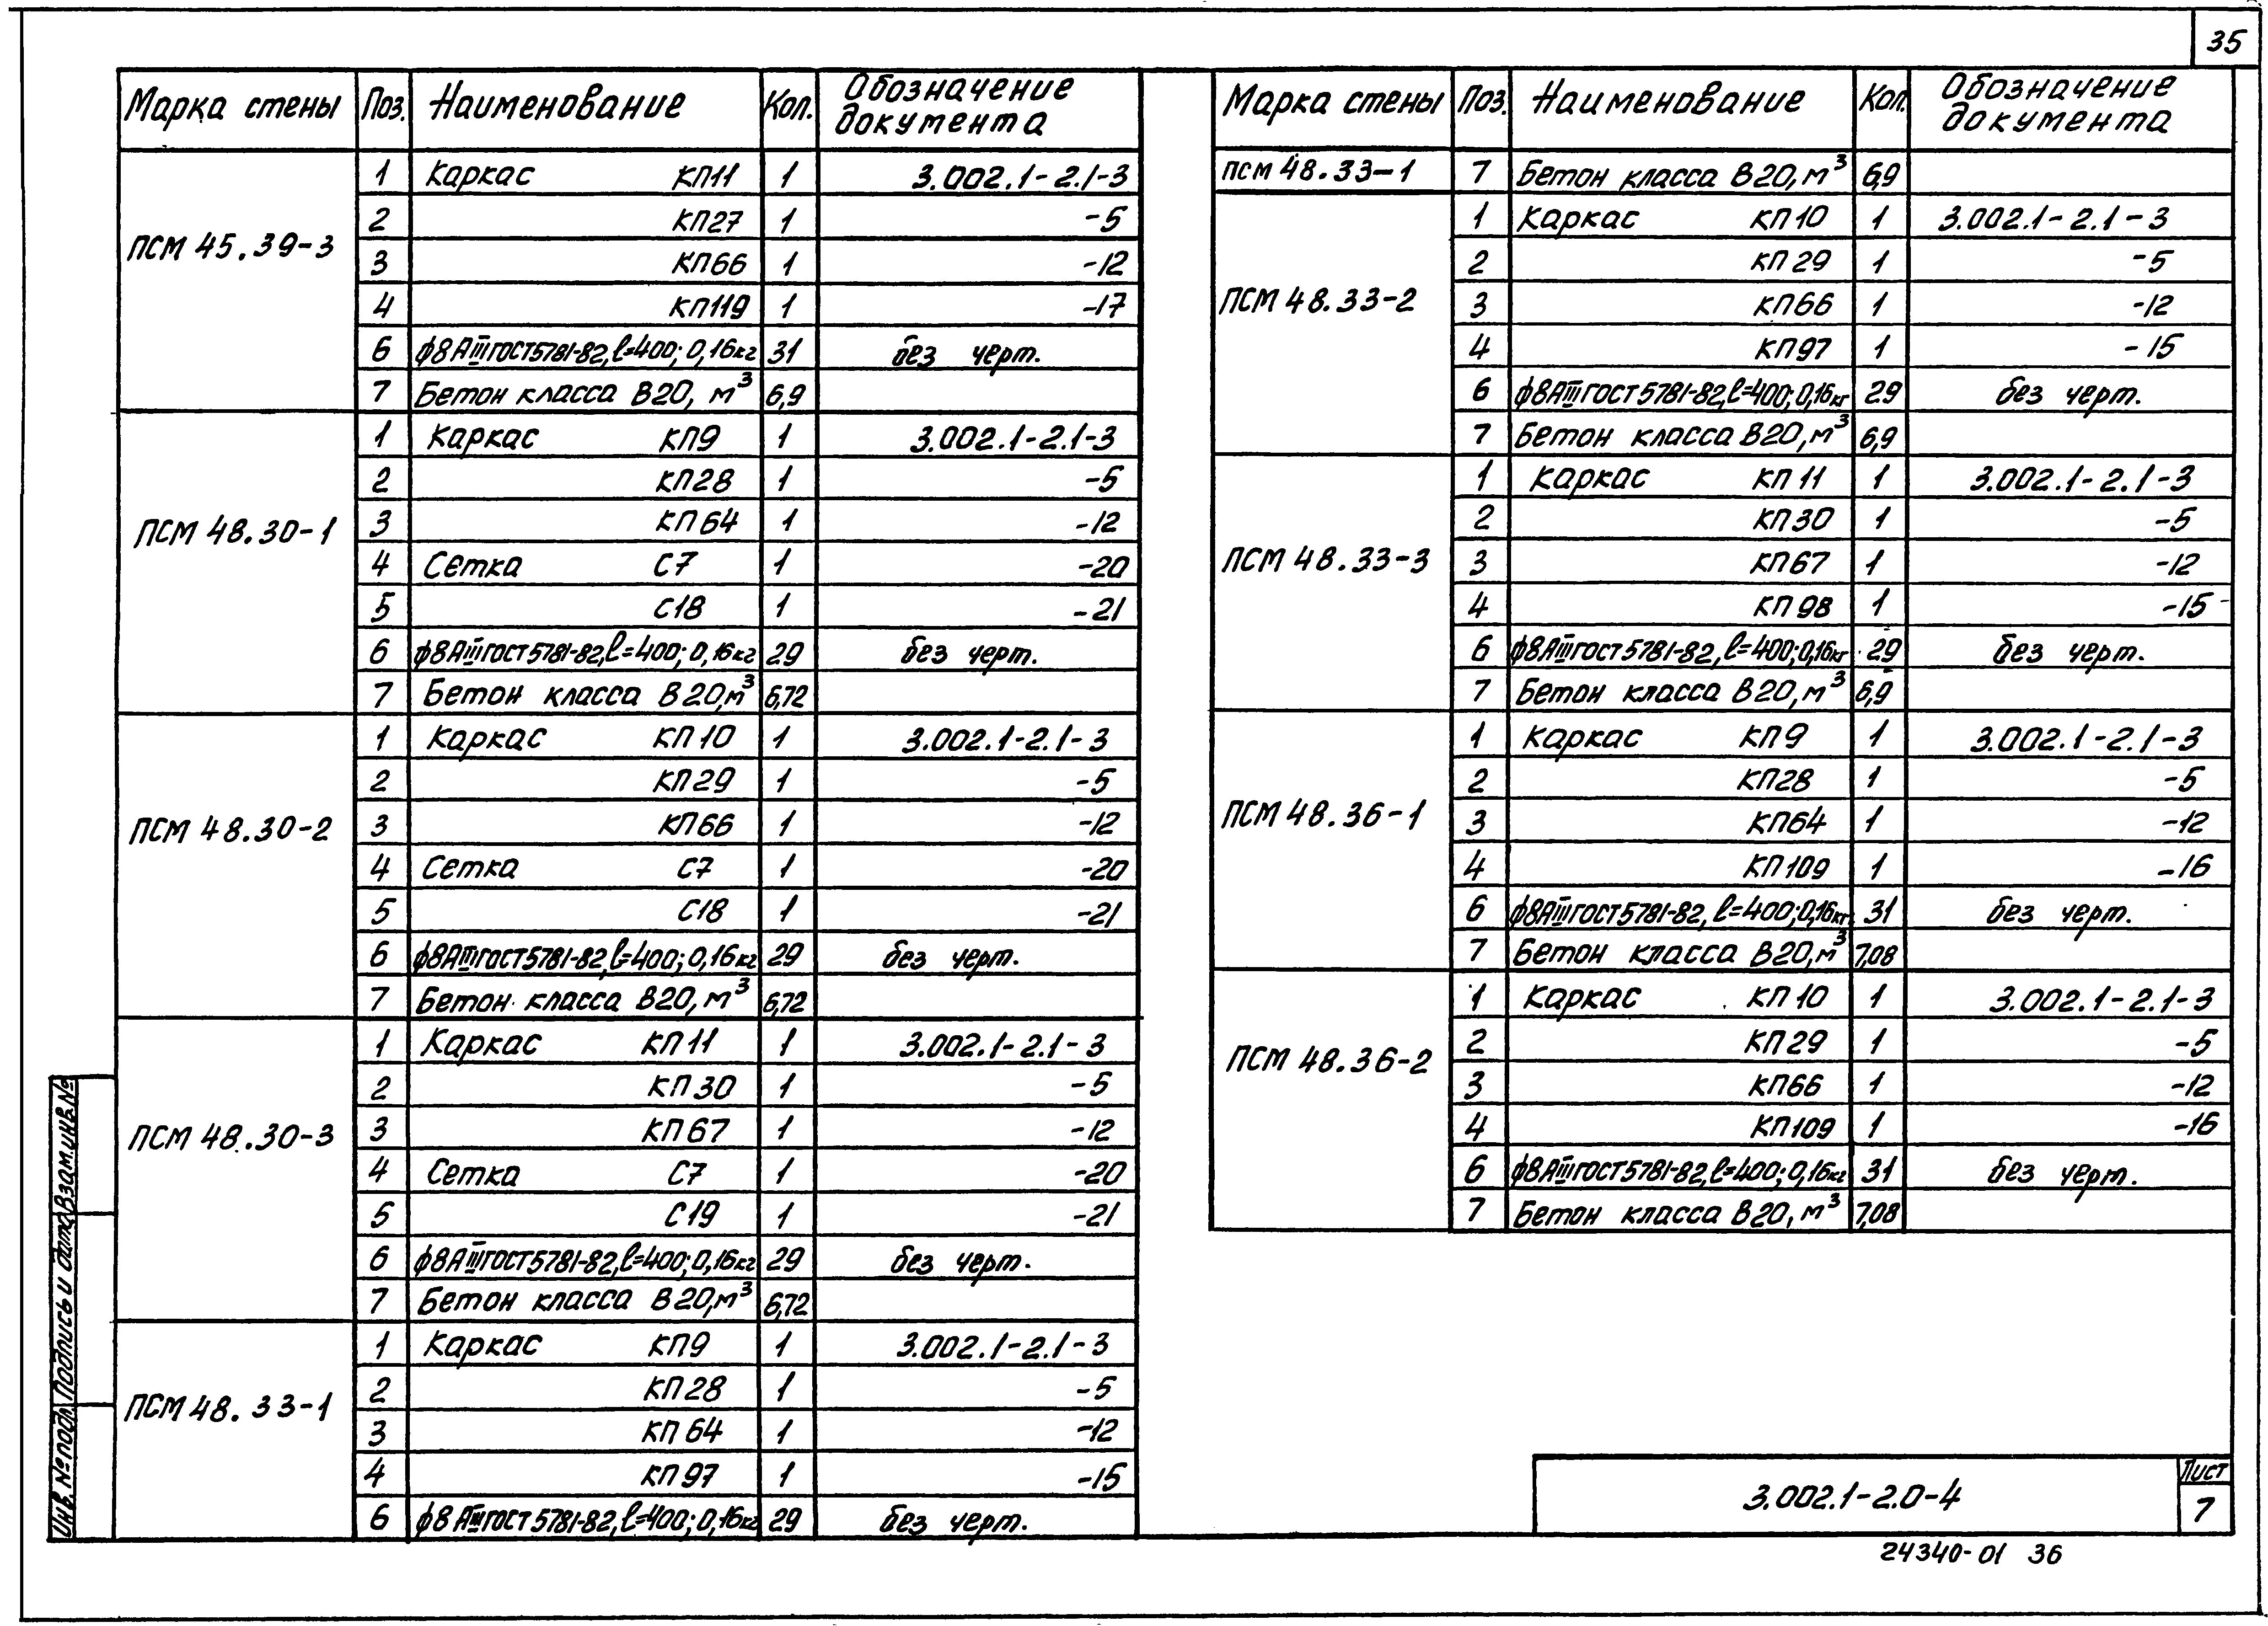 35
Марка стены Поз. Наименование Кол. Обозначение документа
ПСМ 45.39-3
1 Каркас КП11 1 3.002.1-2.1-3
2 КП27 1 -5
3 КП66 1 -12
4 КП119 1 -17
6 ф8АIIIГОСТ5781-82, ℓ=400; 0,16кг 31 без черт.
7 Бетон класса В20, м³ 6,9
ПСМ 48.30-1
1 Каркас КП9 1 3.002.1-2.1-3
2 КП28 1 -5
3 КП64 1 -12
4 Сетка С7 1 -20
5 С18 1 -21
6 ф8АIIIГОСТ5781-82, ℓ=400; 0,16кг 29 без черт.
7 Бетон класса В20, м³ 6,72
ПСМ 48.30-2
1 Каркас КП10 1 3.002.1-2.1-3
2 КП29 1 -5
3 КП66 1 -12
4 Сетка С7 1 -20
5 С18 1 -21
6 ф8АIIIГОСТ5781-82, ℓ=400; 0,16кг 29 без черт.
7 Бетон класса В20, м³ 6,72
ПСМ 48.30-3
1 Каркас КП11 1 3.002.1-2.1-3
2 КП30 1 -5
3 КП67 1 -12
4 Сетка С7 1 -20
5 С19 1 -21
6 ф8АIIIГОСТ5781-82, ℓ=400; 0,16кг 29 без черт.
7 Бетон класса В20, м³ 6,72
ПСМ 48.33-1
1 Каркас КП9 1 3.002.1-2.1-3
2 КП28 1 -5
3 КП64 1 -12
4 КП97 1 -15
6 ф8АIIIГОСТ5781-82, ℓ=400; 0,16кг 29 без черт.
Марка стены Поз. Наименование Кол. Обозначение документа
ПСМ 48.33-1 7 Бетон класса В20, м³ 6,9
ПСМ 48.33-2
1 Каркас КП10 1 3.002.1-2.1-3
2 КП29 1 -5
3 КП66 1 -12
4 КП97 1 -15
6 ф8АIIIГОСТ5781-82, ℓ=400; 0,16кг 29 без черт.
7 Бетон класса В20, м³ 6,9
ПСМ 48.33-3
1 Каркас КП11 1 3.002.1-2.1-3
2 КП30 1 -5
3 КП67 1 -12
4 КП98 1 -15
6 ф8АIIIГОСТ5781-82, ℓ=400; 0,16кг 29 без черт.
7 Бетон класса В20, м³ 6,9
ПСМ 48.36-1
1 Каркас КП9 1 3.002.1-2.1-3
2 КП28 1 -5
3 КП64 1 -12
4 КП109 1 -16
6 ф8АIIIГОСТ5781-82, ℓ=400; 0,16кг 31 без черт.
7 Бетон класса В20, м³ 7,08
ПСМ 48.36-2
1 Каркас КП10 1 3.002.1-2.1-3
2 КП29 1 -5
3 КП66 1 -12
4 КП109 1 -16
6 ф8АIIIГОСТ5781-82, ℓ=400; 0,16кг 31 без черт.
7 Бетон класса В20, м³ 7,08
Инв. № подл. Подпись и дата Взам. инв. №
3.002.1-2.0-4
Лист
7
24340-01 36